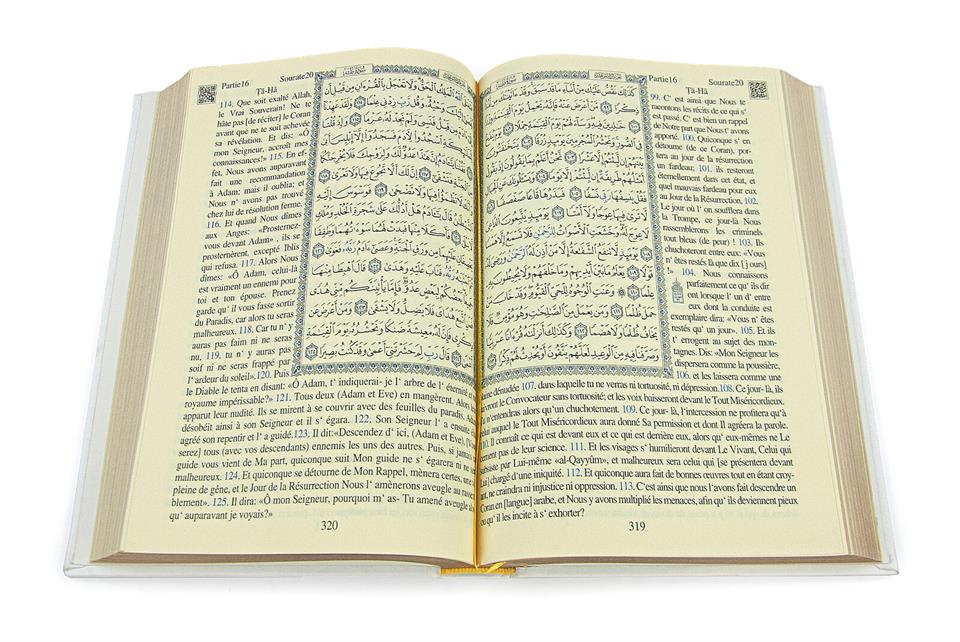 Partie16 Sourate20
Tā-Hā
كَذَٰلِكَ نَقُصُّ عَلَيْكَ مِنْ أَنبَاءِ مَا قَدْ سَبَقَ وَقَدْ ءَاتَيْنَٰكَ مِن
ذِكْرًا ٩٩ مَّنْ أَعْرَضَ عَنْهُ فَإِنَّهُ
خَٰلِدِينَ فِيهِ وَسَاءَ لَهُمْ يَوْمَ الْقِيَٰمَةِ حِمْلًا
فِي الصُّورِ وَنَحْشُرُ الْمُجْرِمِينَ يَوْمَئِذٍ
بَيْنَهُمْ إِن لَّبِثْتُمْ إِلَّا عَشْرًا ١٠٣ نَّحْنُ أَعْلَمُ بِمَا
أَمْثَلُهُمْ طَرِيقَةً إِن لَّبِثْتُمْ إِلَّا
فَقُلْ يَنسِفُهَا رَبِّي نَسْفًا ١٠٥ فَيَذَرُهَا قَاعًا صَفْصَفًا
لَّا تَرَىٰ فِيهَا عِوَجًا وَلَا أَمْتًا ١٠٧ يَوْمَئِذٍ
لَا عِوَجَ لَهُ وَخَشَعَتِ الْأَصْوَاتُ لِلرَّحْمَٰنِ فَلَا تَسْمَعُ إِلَّا
يَوْمَئِذٍ لَّا تَنفَعُ الشَّفَٰعَةُ إِلَّا مَنْ أَذِنَ لَهُ الرَّحْمَٰنُ وَرَضِيَ
يَعْلَمُ مَا بَيْنَ أَيْدِيهِمْ وَمَا خَلْفَهُمْ وَلَا يُحِيطُونَ
عِلْمًا ١١٠ وَعَنَتِ الْوُجُوهُ لِلْحَيِّ الْقَيُّومِ وَقَدْ خَابَ
وَمَن يَعْمَلْ مِنَ الصَّٰلِحَٰتِ
يَخَافُ ظُلْمًا وَلَا هَضْمًا ١١٢ وَكَذَٰلِكَ أَنزَلْنَٰهُ
وَصَرَّفْنَا فِيهِ مِنَ الْوَعِيدِ لَعَلَّهُمْ يَتَّقُونَ أَوْ يُحْدِثُ لَهُمْ ذِكْرًا
99. C' est ainsi que Nous te
racontons les récits de ce qui s'
est passé. C' est bien un rappel
de Notre part que Nous t' avons
apporté. 100. Quiconque s' en
détourne (de ce Coran), por-
tera au jour de la résurrection
un fardeau; 101. ils resteront
éternellement dans cet état, et
quel mauvais fardeau pour eux
au Jour de la Résurrection, 102.
Le jour où l' on soufflera dans
la Trompe, ce jour-là Nous
rassemblerons les criminels
tout bleus (de peur) ! 103. Ils
chuchoteront entre eux: «Vous
n' êtes restés là que dix [ jours]
!» 104. Nous connaissons
parfaitement ce qu' ils di
ront lorsque l' un d' entre
eux dont la conduite est
exemplaire dira: «Vous n' êtes
restés qu' un jour». 105. Et ils t'
errogent au sujet des mon-
tagnes. Dis: «Mon Seigneur les
dispersera comme la poussière,
106. et les laissera comme une
dénudée 107. dans laquelle tu ne verras ni tortuosité, ni dépression.108. Ce jour-là, ils
suivront le Convocateur sans tortuosité; et les voix baisseront devant le Tout Miséricordieux.
n'entendras alors qu'un chuchotement. 109. Ce jour-là, l'intercession ne profitera qu'à
celui auquel le Tout Miséricordieux aura donné Sa permission et dont Il agréera la parole.
110. Il connaît ce qui est devant eux et ce qui est derrière eux, alors qu' eux-mêmes ne Le
cernent pas de leur science. 111. Et les visages s' humilieront devant Le Vivant, Celui qui
subsiste par Lui-même «al-Qayyûm», et malheureux sera celui qui [se présentera devant
Lui] chargé d'une iniquité. 112. Et quiconque aura fait de bonnes œuvres tout en étant croy-
ant, ne craindra ni injustice ni oppression. 113. C'est ainsi que nous l'avons fait descendre un
Coran en [langue] arabe, et Nous y avons multiplié les menaces, afin qu' ils deviennent pieux
ou qu' il les incite à s' exhorter?
319
Partie16 Sourate20
Tā-Hā
فَتَعَٰلَى اللَّهُ الْمَلِكُ الْحَقُّ وَلَا تَعْجَلْ بِالْقُرْءَانِ مِن قَبْلِ أَن
يُقْضَىٰ إِلَيْكَ وَحْيُهُ وَقُل رَّبِّ زِدْنِي عِلْمًا ١١٤ وَلَقَدْ عَهِدْنَا
مِن قَبْلُ فَنَسِيَ وَلَمْ نَجِدْ لَهُ عَزْمًا ١١٥ وَإِذْ قُلْنَا
لِلْمَلَٰئِكَةِ اسْجُدُوا لِءَادَمَ فَسَجَدُوا إِلَّا إِبْلِيسَ أَبَىٰ
إِنَّ هَٰذَا عَدُوٌّ لَّكَ وَلِزَوْجِكَ فَلَا يُخْرِجَنَّكُمَا
مِنَ الْجَنَّةِ فَتَشْقَىٰ ١١٧ إِنَّ لَكَ أَلَّا تَجُوعَ فِيهَا وَلَا تَعْرَىٰ
وَأَنَّكَ لَا تَظْمَؤُا فِيهَا وَلَا تَضْحَىٰ ١١٩ فَوَسْوَسَ إِلَيْهِ
قَالَ يَٰءَادَمُ هَلْ أَدُلُّكَ عَلَىٰ شَجَرَةِ الْخُلْدِ وَمُلْكٍ
فَأَكَلَا مِنْهَا فَبَدَتْ لَهُمَا سَوْءَٰتُهُمَا وَطَفِقَا
مِن وَرَقِ الْجَنَّةِ وَعَصَىٰ ءَادَمُ رَبَّهُ فَغَوَىٰ
رَبُّهُ فَتَابَ عَلَيْهِ وَهَدَىٰ ١٢٢ قَالَ اهْبِطَا مِنْهَا
بَعْضُكُمْ لِبَعْضٍ عَدُوٌّ فَإِمَّا يَأْتِيَنَّكُم مِّنِّي هُدًى
هُدَايَ فَلَا يَضِلُّ وَلَا يَشْقَىٰ ١٢٣ وَمَنْ أَعْرَضَ عَن
ذِكْرِي فَإِنَّ لَهُ مَعِيشَةً ضَنكًا وَنَحْشُرُهُ يَوْمَ الْقِيَٰمَةِ
قَالَ رَبِّ لِمَ حَشَرْتَنِي أَعْمَىٰ وَقَدْ كُنتُ بَصِيرًا ١٢٥
114. Que soit exalté Allah,
le Vrai Souverain! Ne te
hâte pas [de réciter] le Coran
avant que ne te soit achevée
sa révélation. Et dis: «Ô
mon Seigneur, accroît mes
connaissances!» 115. En ef-
fet, Nous avons auparavant
fait une recommandation
à Adam; mais il oublia; et
Nous n' avons pas trouvé
chez lui de résolution ferme.
116. Et quand Nous dîmes
aux Anges: «Prosternez-
vous devant Adam» , ils se
prosternèrent, excepté Iblis
qui refusa. 117. Alors Nous
dîmes: «Ô Adam, celui-là
est vraiment un ennemi pour
toi et ton épouse. Prenez
garde qu' il vous fasse sortir
du Paradis, car alors tu seras
malheureux. 118. Car tu n' y
auras pas faim ni ne seras
nu, 119. tu n' y auras pas
soif ni ne seras frappé par
l' ardeur du soleil».120. Puis
le Diable le tenta en disant: «Ô Adam, t' indiquerai- je l' arbre de l' éternité et
royaume impérissable?» 121. Tous deux (Adam et Eve) en mangèrent. Alors leur
apparut leur nudité. Ils se mirent à se couvrir avec des feuilles du paradis. Adam
désobéit ainsi à son Seigneur et il s' égara. 122. Son Seigneur l' a ensuite
agréé son repentir et l' a guidé.123. Il dit:«Descendez d' ici, (Adam et Eve), [Vous
serez] tous (avec vos descendants) ennemis les uns des autres. Puis, si jamais un
guide vous vient de Ma part, quiconque suit Mon guide ne s' égarera ni ne
124. Et quiconque se détourne de Mon Rappel, mènera certes, une vie
pleine de gêne, et le Jour de la Résurrection Nous l' amènerons aveugle au rassem-
blement». 125. Il dira: «Ô mon Seigneur, pourquoi m' as- Tu amené aveugle alors
qu' auparavant je voyais?»
320